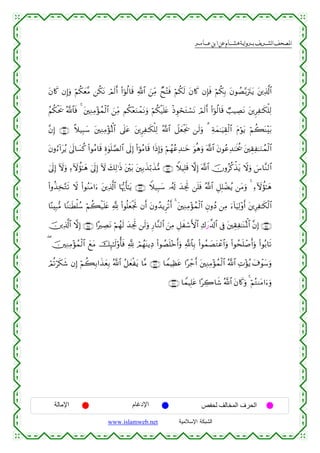 المصحف الشريف برواية هشام عن ابن عامر
ٱلَّذِينَ يَتَرَبَّصُونَ بِكُمْ فَإِن كَانَ لَكُمْ فَتْحٌ مِّنَ ٱللَّهِ قَالُوٓا۟ أَلَمْ نَكُن مَّعَكُمْ وَإِن كَانَ
لِلْكَٰفِرِينَ نَصِيبٌ قَالُوٓا۟ أَلَمْ نَسْتَحْوِذْ عَلَيْكُمْ وَنَمْنَعْكُم مِّنَ ٱلْمُؤْمِنِينَ ۚ فَٱللَّهُ يَحْكُمُ
بَيْنَكُمْ يَوْمَ ٱلْقِيَٰمَةِ ۗ وَلَن يَجْعَلَ ٱللَّهُ لِلْكَٰفِرِينَ عَلَى ٱلْمُؤْمِنِينَ سَبِيلًا ﴿١٤١﴾ إِنَّ
ٱلْمُنَٰفِقِينَ يُخَٰدِعُونَ ٱللَّهَ وَهُوَ خَٰدِعُهُمْ وَإِذَا قَامُوٓا۟ إِلَى ٱلصَّلَوٰةِ قَامُوا۟ كُسَالَىٰ يُرَآءُونَ
ٱلنَّاسَ وَلَا يَذْكُرُونَ ٱللَّهَ إِلَّا قَلِيلًا ﴿١٤٢﴾ مُّذَبْذَبِينَ بَيْنَ ذَٰلِكَ لَآ إِلَىٰ هَٰٓؤُلَآءِ وَلَآ إِلَىٰ
هَٰٓؤُلَآءِ ۚ وَمَن يُضْلِلِ ٱللَّهُ فَلَن تَجِدَ لَهُۥ سَبِيلًا ﴿١٤٣﴾ يَٰٓأَيُّهَا ٱلَّذِينَ ءَامَنُوا۟ لَا تَتَّخِذُوا۟
ٱلْكَٰفِرِينَ أَوْلِيَآءَ مِن دُونِ ٱلْمُؤْمِنِينَ ۚ أَتُرِيدُونَ أَن تَجْعَلُوا۟ لِلَّهِ عَلَيْكُمْ سُلْطَٰنًا مُّبِينًا
﴿١٤٤﴾ إِنَّ ٱلْمُنَٰفِقِينَ فِى ٱلدَّرَكِ ٱلْأَسْفَلِ مِنَ ٱلنَّارِ وَلَن تَجِدَ لَهُمْ نَصِيرًا ﴿١٤٥﴾ إِلَّا ٱلَّذِينَ
تَابُوا۟ وَأَصْلَحُوا۟ وَٱعْتَصَمُوا۟ بِٱللَّهِ وَأَخْلَصُوا۟ دِينَهُمْ لِلَّهِ فَأُو۟لَٰٓئِكَ مَعَ ٱلْمُؤْمِنِينَ ۖ
وَسَوْفَ يُؤْتِ ٱللَّهُ ٱلْمُؤْمِنِينَ أَجْرًا عَظِيمًا ﴿١٤٦﴾ مَّا يَفْعَلُ ٱللَّهُ بِعَذَابِكُمْ إِن شَكَرْتُمْ
وَءَامَنتُمْ ۚ وَكَانَ ٱللَّهُ شَاكِرًا عَلِيمًا ﴿١٤٧﴾
الحرف المخالف لحفص الإدغام الإمالة
الشبكة الإسلامية www.islamweb.net